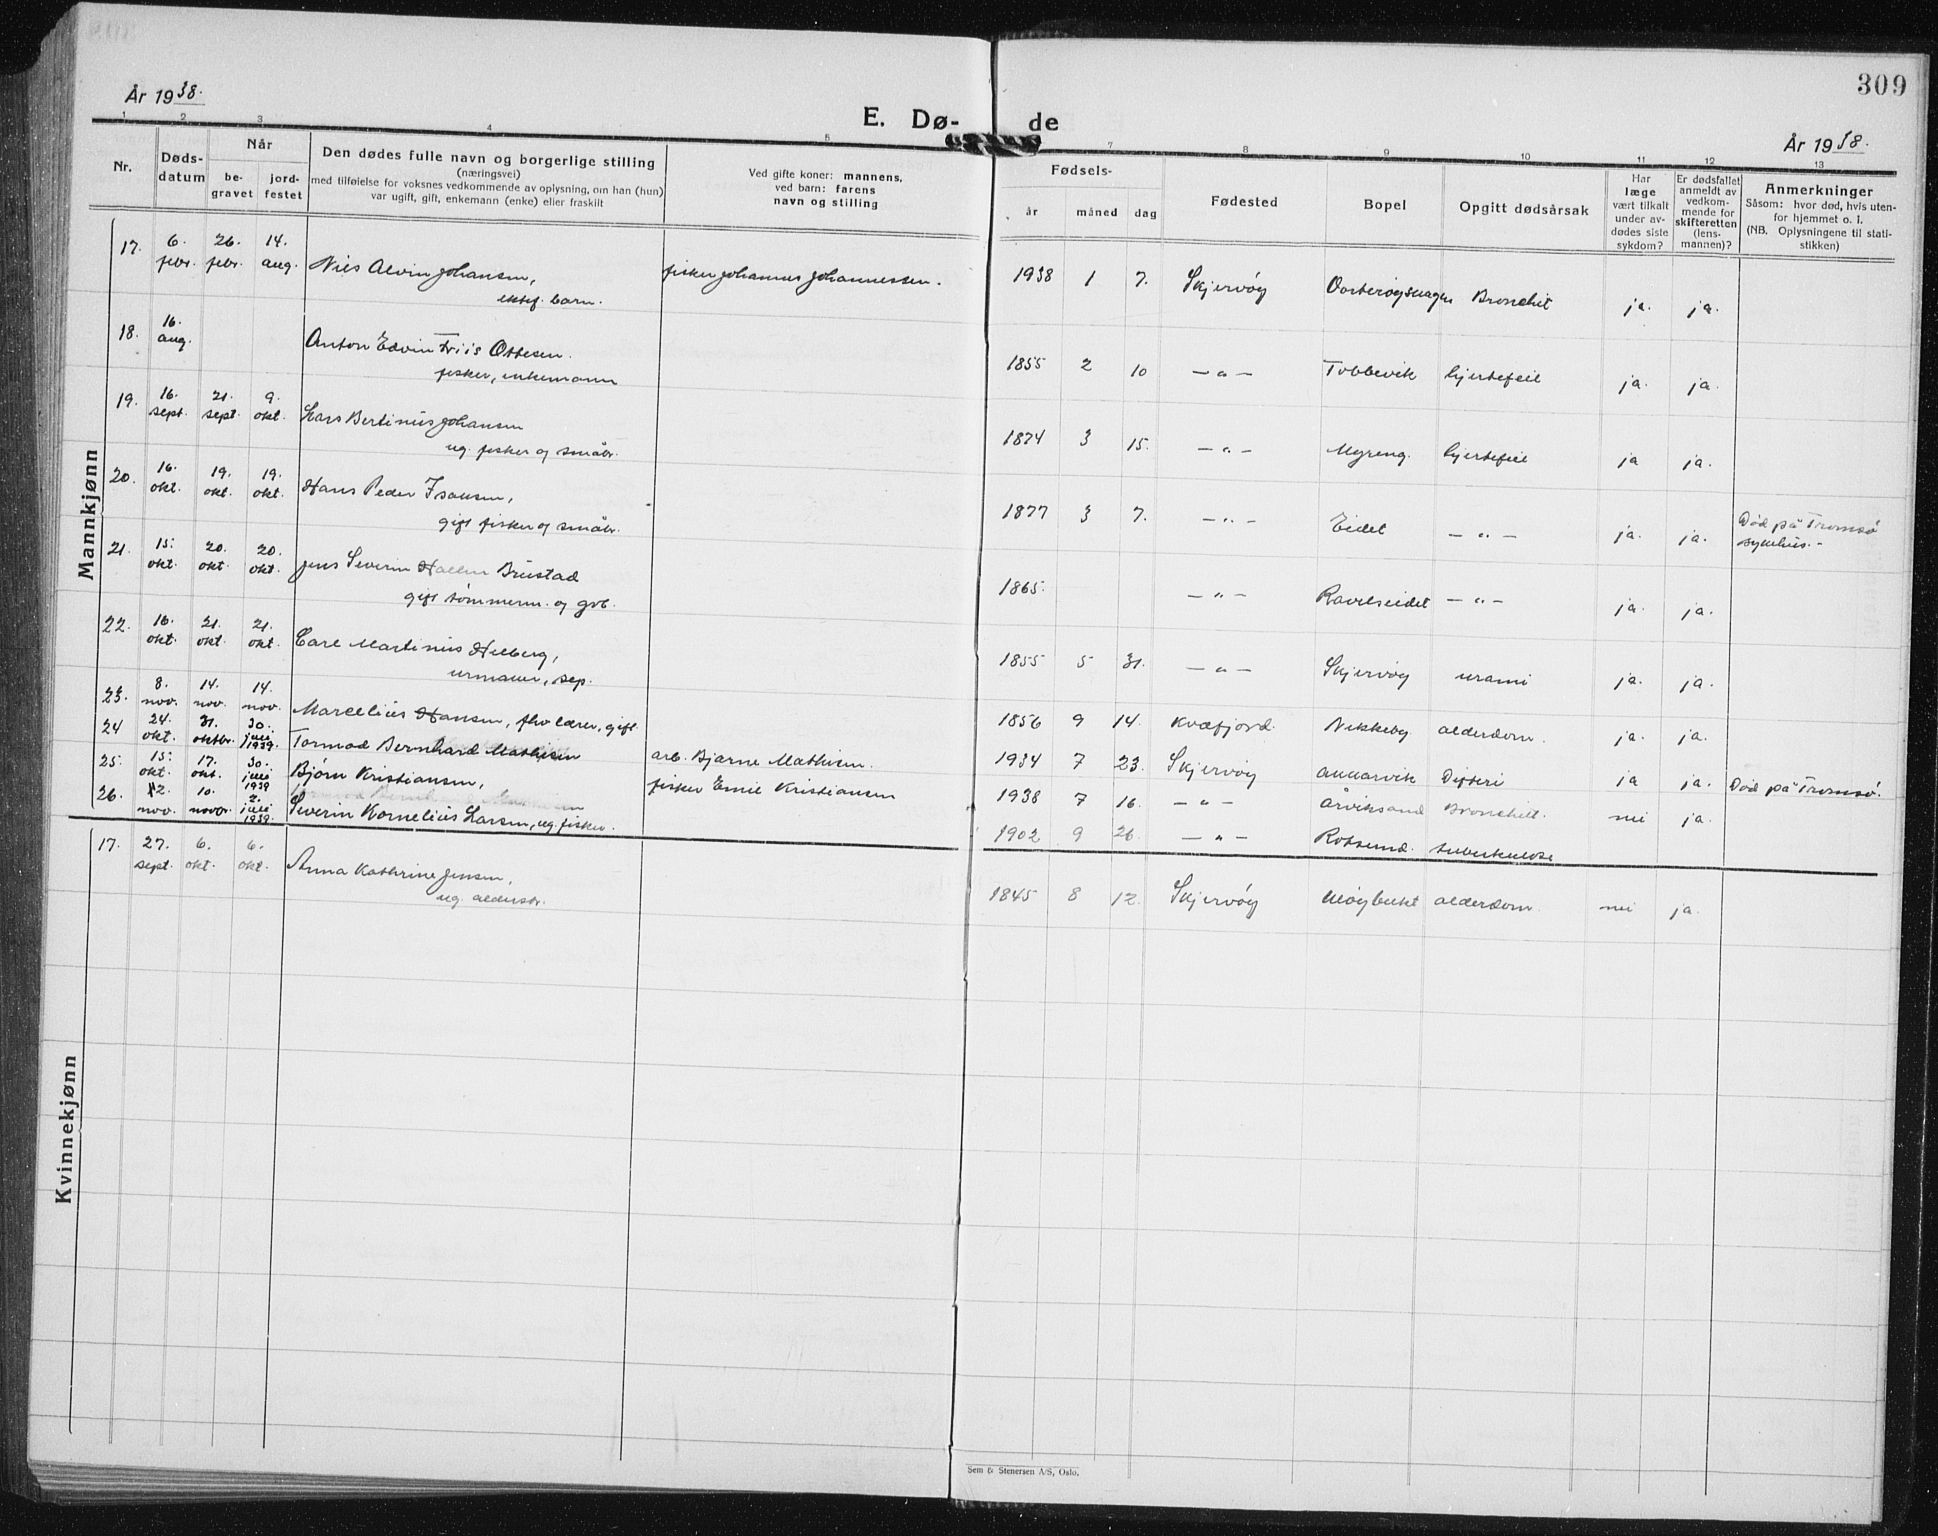 309
År 1938.
E. Dø- de
År 1938.
1 2 3 4 5 7 8 9 10 11 12 13
Nr.
Døds-
datum
Når
be-
gravet
jord-
festet
Den dødes fulle navn og borgerlige stilling
(næringsvei)
med tilføielse for voksnes vedkommende av oplysning, om han (hun)
var ugift, gift, enkemann (enke) eller fraskilt
Ved gifte koner: mannens,
ved barn: farens
navn og stilling
Fødsels-
år måned dag
Fødested
Bopel
Opgitt dødsårsak
Har
læge
vært tilkalt
under av-
dødes siste
sykdom?
Er dødsfallet
anmeldt av
vedkom-
mende for
skifteretten
(lens-
mannen)?
Anmerkninger
Såsom: hvor død, hvis uten-
for hjemmet o. l.
(NB. Oplysningene til stati-
stikken)
Mannkjønn
17. 6. febr. 26. febr. 14. aug. Nils Alvin Johansen, fisker Johannes Johannessen. 1938 1 7. Skjervøy Bronchit ja. ja.
ektef. barn.
18. 16. aug. Anton Edvin Friis Ottesen. 1855 2 10 — " — Tobbevik hjertefeil ja. ja.
fisker, enkemann
19. 16. sept. 21. sept. 9. okt. Lars Bertinius Johansen 1874 3 15. — " — Myreng. hjertefeil ja ja.
ug. fisker og småbr.
20. 16. okt. 19. okt. 19. okt. Hans Peder Isaksen, 1877 3 7. — " — Eidet — " — ja. ja. Død på Tromsø
gift fisker og småbr. sykehus.-
21. 15. okt. 20. okt. 20. okt. Jens Severin Hallen Brustad 1865. — " — Ravelseidet — " — ja. ja.
gift tømmerm. og gbr.
22. 16. okt. 21. okt. 21. okt. Carl Martinius Hilberg, 1855 5 31. — " — Skjervøy urami ja. ja.
urmaker, sep.
23. 8. nov. 14. nov. 14. nov. Marcelius Hansen, fhv lærer, gift 1856 9 14. Kvæfjord. Nikkeby alderdom. ja. ja.
24 24. okt. 31. oktbr. 30. juli 1939. Tormod Bernhard Mathisen arb. Bjarne Mathisen. 1934 7 23. Skjervøy Difteri ja ja. Død på Tromsø.
25. 15. okt. 17. okt. 30. juli 1939 Bjørn Kristiansen, fisker Emil Kristiansen 1938 7 16. — " — Årviksand Bronchitt. nei ja.
26. 2. nov. 10. novbr. 2. juli 1939. Severin Kornelius Larsen, ug. fisker. 1902 9 26. — " — Rotsund. tuberkulose
Kvinnekjønn
17. 27. sept. 6. okt. 6. okt. Anna Kathrine Jensen, 1845 8 12. Skjervøy Meøybukt alderdom. nei ja.
ug alderstr.
Sem & Stenersen A/S, Oslo.